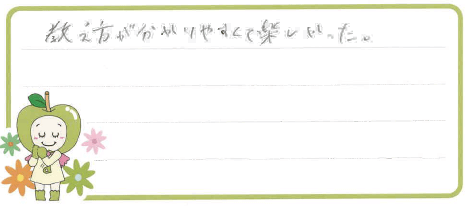 教え方が分かりやすくて楽しかった。